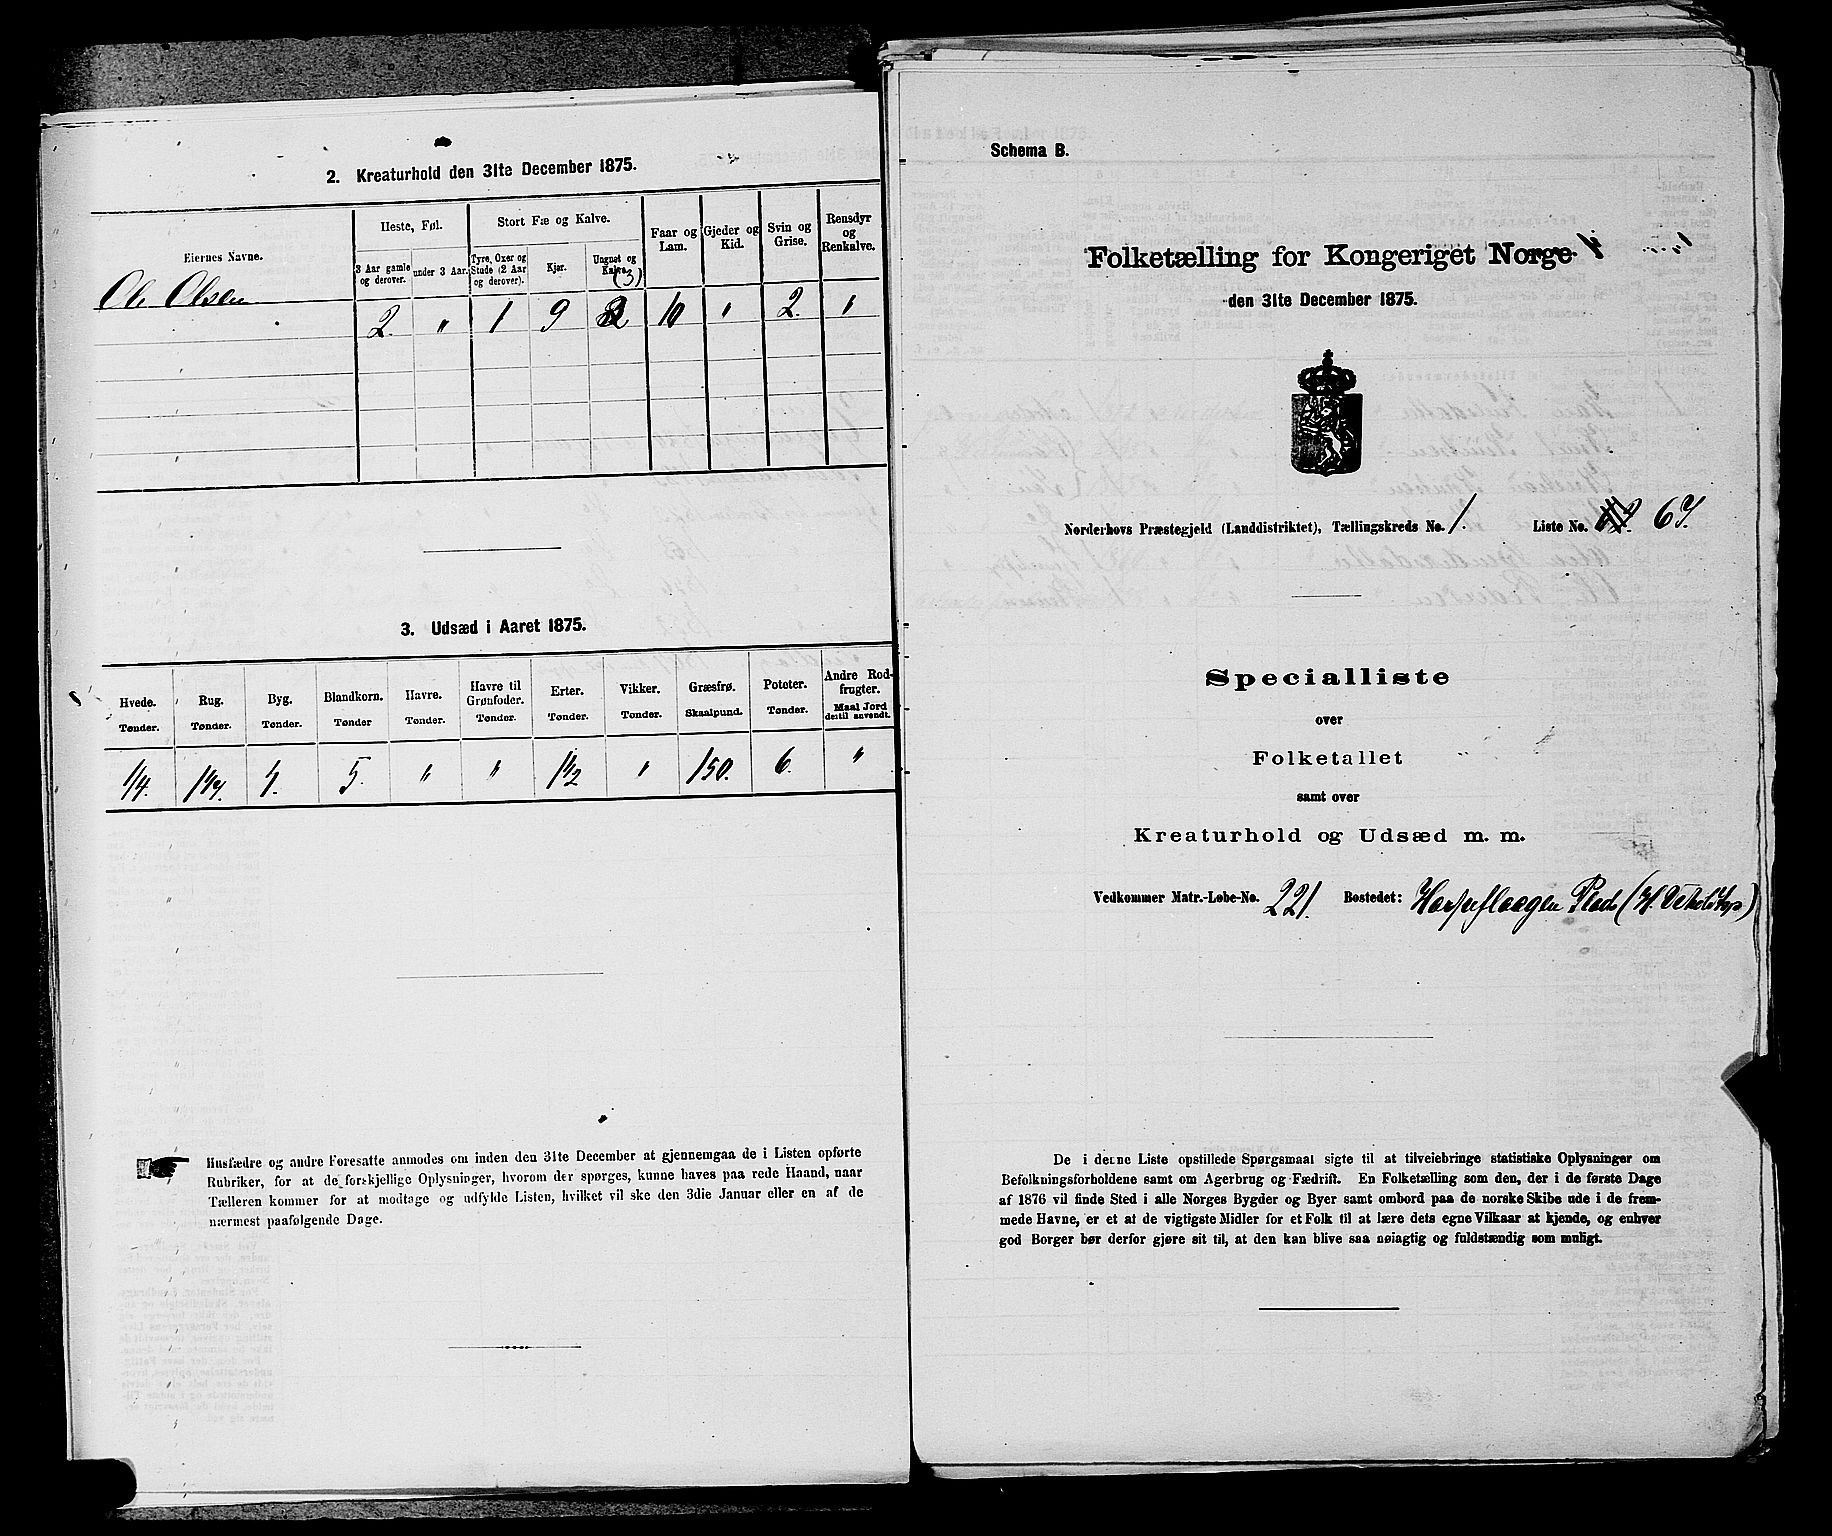 2. Kreaturhold den 31te December 1875.
Eiernes Navne.
Heste, Føl.
Stort Fæ og Kalve.
Faar og Lam.
Gjeder og Kid.
Svin og Grise.
Rensdyr og Renkalve.
3 Aar gamle og derover.
under 3 Aar.
Tyre, Oxer og Stude (2 Aar og derover).
Kjør.
Ungnøt og Kalve.
(3)
Ole Olsen 2. " 1 9 2 10 " 2. "
3. Udsæd i Aaret 1875.
Hvede. Rug. Byg. Blandkorn. Havre. Havre til Grønfoder. Erter. Vikker. Græsfrø. Poteter. Andre Rodfrugter.
Tønder. Tønder. Tønder. Tønder Tønder. Tønder. Tønder. Tønder. Skaalpund. Tønder. Maal Jord dertil anvendt.
1/4. 5. " " 1 1/2 " 150. 6. "
Husfædre og andre Foresatte anmodes om inden den 31te December at gjennemgaa de i Listen opførte
Rubriker, for at de forskjellige Oplysninger, hvorom der spørges, kunne haves paa rede Haand, naar
Tælleren kommer for at modtage og udfylde Listen, hvilket vil ske den 3die Januar eller en af de
nærmest paafølgende Dage.
Schema B.
Folketælling for Kongeriget Norge
den 31te December 1875.
Norderhovs Præstegjeld (Landdistriktet), Tællingskreds No. 1. Liste No. 67.
Specialliste
over
Folketallet
samt over
Kreaturhold og Udsæd m. m.
Vedkommer Matr.-Løbe-No. 221. Bostedet: Plads
De i denne Liste opstillede Spørgsmaal sigte til at tilveiebringe statistiske Oplysninger om
Befolkningsforholdene samt om Agerbrug og Fædrift. En Folketælling som den, der i de første Dage
af 1876 vil finde Sted i alle Norges Bygder og Byer samt ombord paa de norske Skibe ude i de frem-
mede Havne, er et at de vigtigste Midler for et Folk til at lære dets egne Vilkaar at kjende, og enhver
god Borger bør derfor gjøre sit til, at den kan blive saa nøiagtig og fuldstændig som muligt.